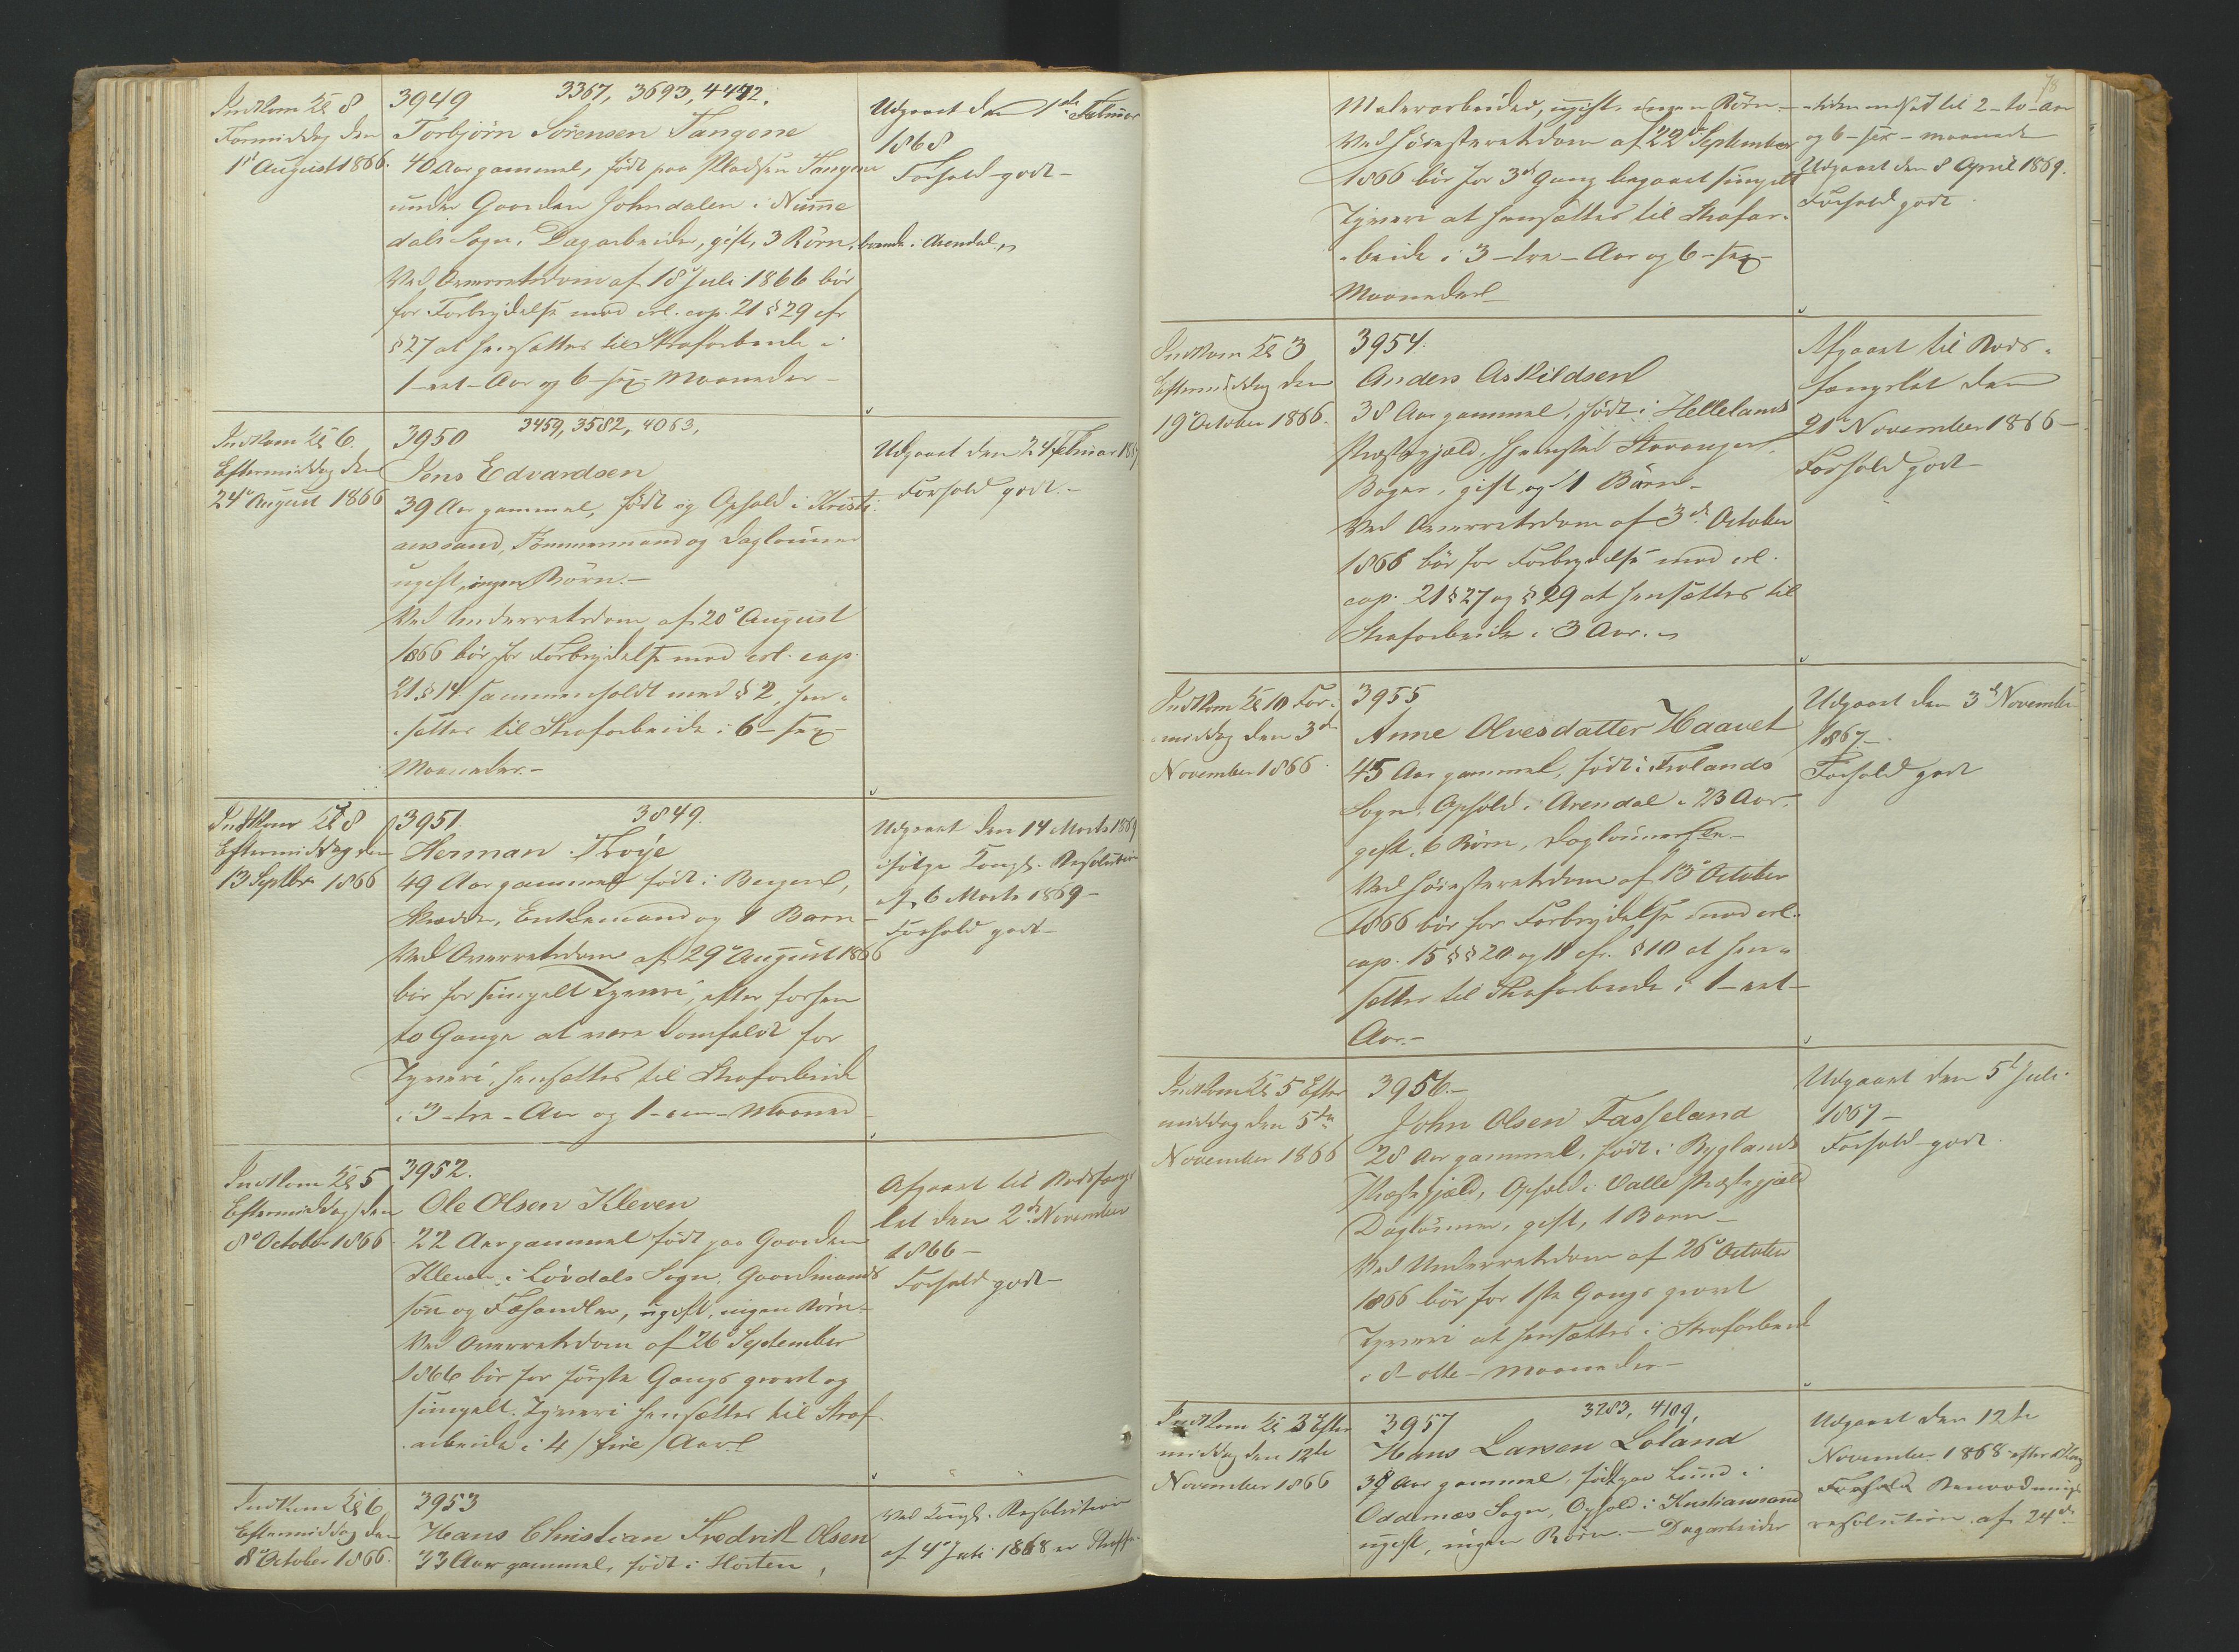 Indkom Kl 8
Formiddag den
1ste August 1866.
3949 3367, 3693, 4442.
Torbjørn Sørensen Tangene
40 Aar gammel, født paa Pladsen Tangene
under Gaarden Johndalen i Numme
dals Sogn. Dagarbeider, gift, 3 Børn, boende i Arendal.
Ved Overretsdom af 18 Juli 1866 bør
for Forbrydelse mod crl. cap. 21 § 29 cfr
§ 27 at hensættes til Strafarbeide i
1 – eet – Aar og 6 – sex – Maaneder –
Udgaaet den 1ste Februar
1868
Forhold godt –
Indkom Kl 6.
Eftermiddag den
24de August 1866
3950 3459, 3582, 4063,
Jens Edvardsen
39 Aar gammel, født og Ophold i Kristi-
anssand, Tømmermand og Daglønner
ugift, ingen Børn. –
Ved Underretsdom af 20de August
1866 bør for Forbrydelse mod crl. cap.
21 § 14 sammenholdt med § 2, hen-
sættes til Strafarbeide i 6 – sex –
Maaneder. –
Udgaaet den 24 Februar 1867
Forhold godt. –
Indkom Kl 8
Eftermiddag den
13 Septbr 1866
3951. 3849.
Herman Troye
49 Aar gammel født i Bergen,
Skrædder, Enkemand og 1 Barn –
Ved Overretsdom af 29de August 1866
bør for simpelt Tyveri, efter forhen
to Gange at være Domfældt for
Tyveri, hensættes til Strafarbeide
i 3 – tre – Aar og 1 – een – Maaned –
Udgaaet den 14 Marts 1869
ifølge Kongl. Resolution
af 6 Marts 1869 –
Forhold godt –
Indkom Kl 5
Eftermiddag den
8de October 1866
3952.
Ole Olsen Kleven
22 Aar gammel født paa Gaarden
Kleven i Løvdals Sogn, Gaardmands
søn og Fæhandler, ugift, ingen Børn –
Ved Overretsdom af 26 September
1866 bør for første Gangs grovt og
simpelt Tyveri hensættes til Straf-
arbeide i 4 / fire / Aar.
Afgaaet til Bodsfæng-
let den 2den November
1866 –
Forhold godt –
Indkom Kl 6
Eftermiddag den
8de October 1866.
3953
Hans Christian Fredrik Olsen
33 Aar gammel, født i Horten,
Ved Kongl. Resolution
af 4de Juli 1868 er Straffe-
78
Malerarbeider, ugift, ingen Børn –
Ved Høiesteretsdom af 22de September
1866 bør for 3de Gang begaaet simpelt
Tyveri at hensættes til Strafar-
beide i 3 – tre – Aar og 6 – sex –
Maaneder
tiden nedsat til 2 – to – Aar
og 6 – sex – maaneder
Udgaaet den 8 April 1869.
Forhold godt.
Indkom Kl 3
Eftermiddag den
19de October 1866.
3954.
Anders Askildsen
38 Aar gammel, født i Hellelands
Præstegjæld, hjemsted Stavanger,
Bager, gift og 1 Barn –
Ved Overretsdom af 3de October
1866 bør for Forbrydelse mod crl.
cap. 21 § 27 og § 29 at hensættes til
Strafarbeide i 3 Aar.
Afgaaet til Bods-
fængslet den
21de November 1866 –
Forhold godt –
Indkom Kl 10 For-
middag den 3de
November 1866.
3955
Anne Olvesdatter Haavet
45 Aar gammel, født i Frolands
Sogn, Ophold i Arendal i 23 Aar,
gift, 6 Børn, Daglønnerske –
Ved Høiesteretsdom af 13de October
1866 bør for Forbrydelse mod crl.
cap. 15 §§ 20 og 11 cfr. § 10 at hen-
sættes til Strafarbeide i 1 – eet –
Aar. –
Udgaaet den 3de November
1867 –
Forhold godt
Indkom Kl 5 Efter
middag den 5te
November 1866
3956 –
John Olsen Fasseland
28 Aar gammel, født i Byglands
Præstegjæld, Ophold i Valle Præstegjæld
Dagløнner, gift, 1 Barn –
Ved Underretsdom af 26de October
1866 bør for 1ste Gangs grovt
Tyveri at hensættes i Strafarbeide
i 8 – otte – Maaneder –
Udgaaet den 5te Juli
1867 –
Forhold godt.
Indkom Kl 3 Efter
middag den 12te
November 1866
3957 3283, 4109,
Hans Larsen Loland
38 Aar gammel, født paa Lund i
Oddernæs Sogn, Ophold i Kristianssand
ugift, ingen Børn. – Dagarbeider
Udgaaet den 12te
November 1868 efter Kong
Forhold Benaadnings
resolution af 24de